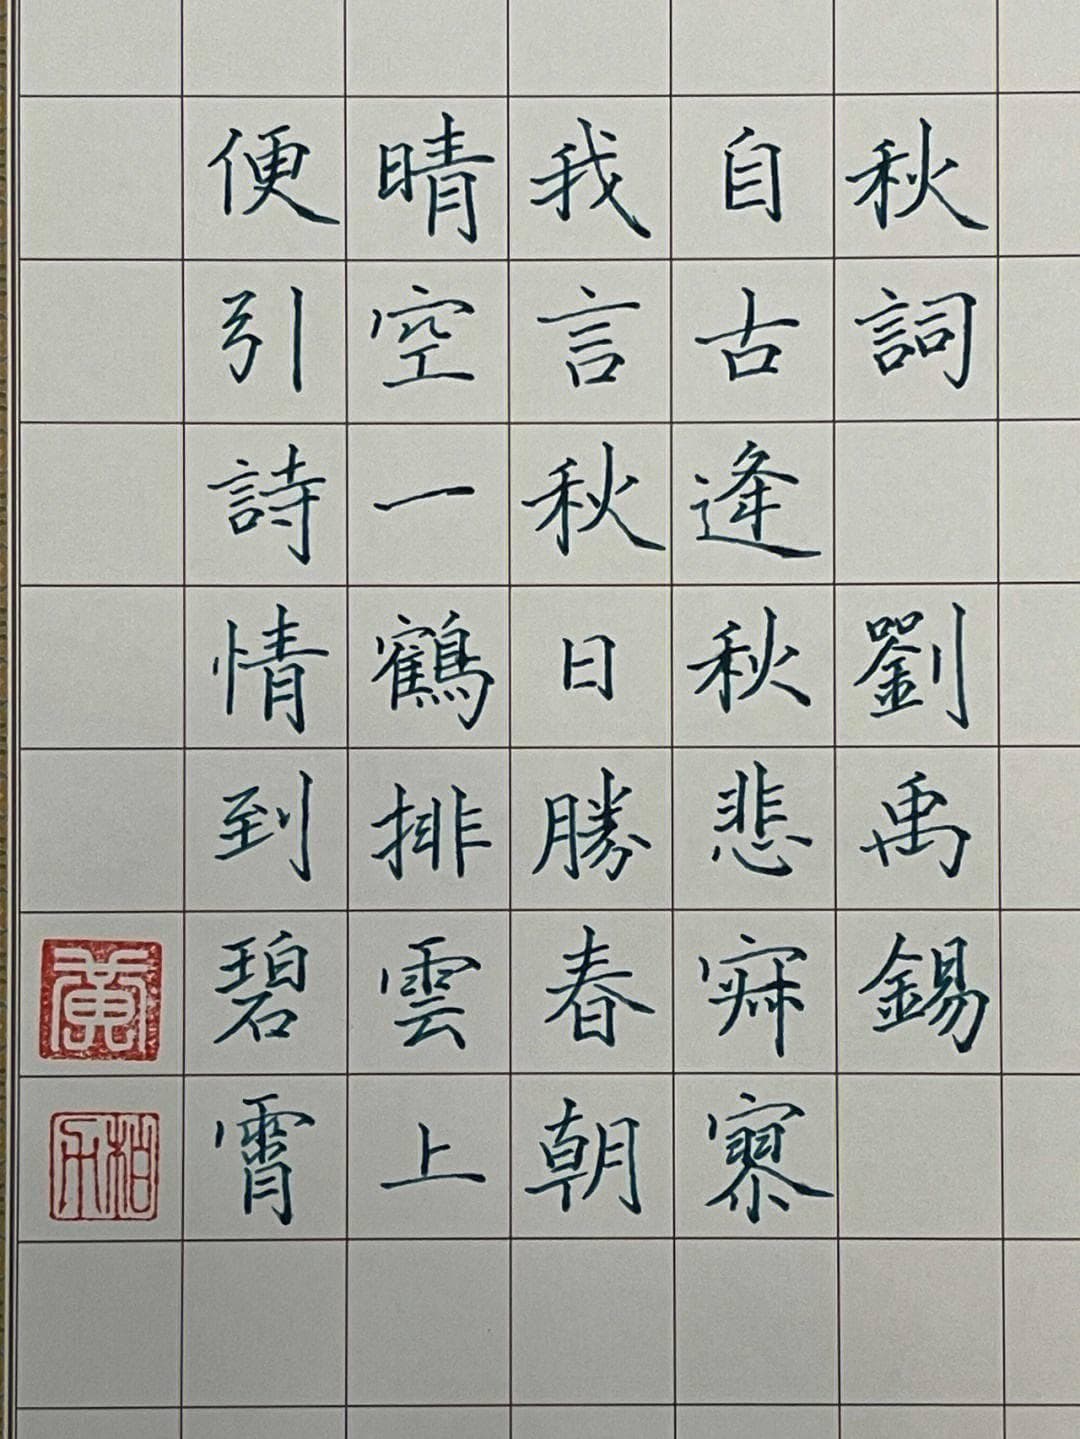 秋詞 劉禹錫
自古逢秋悲寂寥
我言秋日勝春朝
晴空一鶴排雲上
便引詩情到碧霄
黃